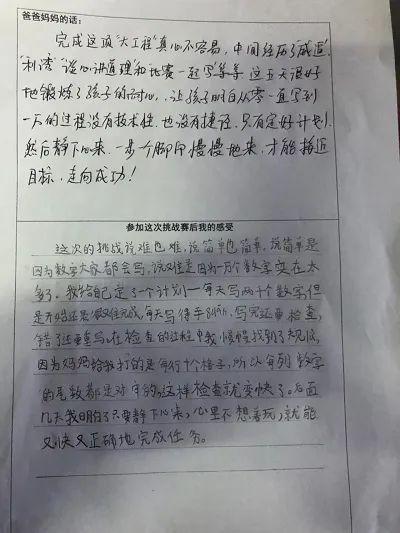 爸爸妈妈的话:
完成这项“大工程”真心不容易,中间经历了“威逼”
“利诱”谈心讲道理和比赛一起写等等 这五天很好
地锻炼了孩子的耐心,让孩子明白从零一直写到
一万的过程没有技术性,也没有捷径,只有定好计划,
然后静下心来,一步一个脚印慢慢地来,才能接近
目标,走向成功!
参加这次挑战赛后我的感受
这次的挑战说难也难,说简单也简单,说简单是
因为数字大家都会写,说难是因为一万个数字实在太
多了。我给自己定了个计划——每天写两千个数字,但
是开始还是很难完成,每天写得手酸,写完还要检查,
错了还要重写。在检查的过程中我慢慢找到了规律,
因为妈妈给我打的是每行十个格子,所以每列数字
的尾数都是对齐的,这样检查就变快了。后面
几天我明白了只要静下心来,心里不想着玩,就能
又快又正确地完成任务。